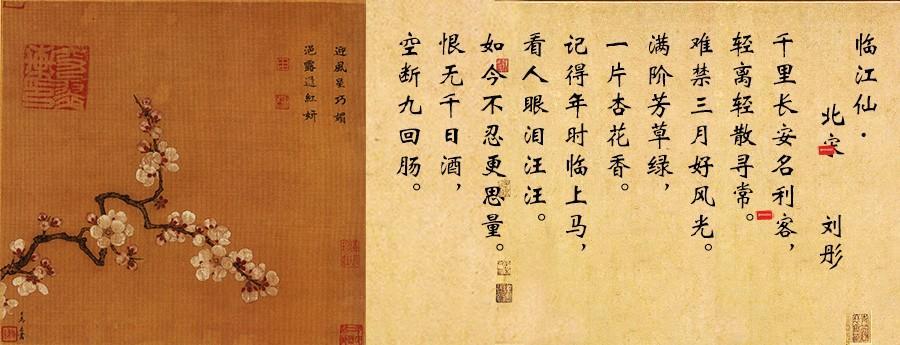 临江仙·
北宋 刘彤
千里长安名利客，
轻离轻散寻常。
难禁三月好风光。
满阶芳草绿，
一片杏花香。
记得年时临上马，
看人眼泪汪汪。
如今不忍更思量。
恨无千日酒，
空断九回肠。
迎風呈巧媚
浥露逞紅妍